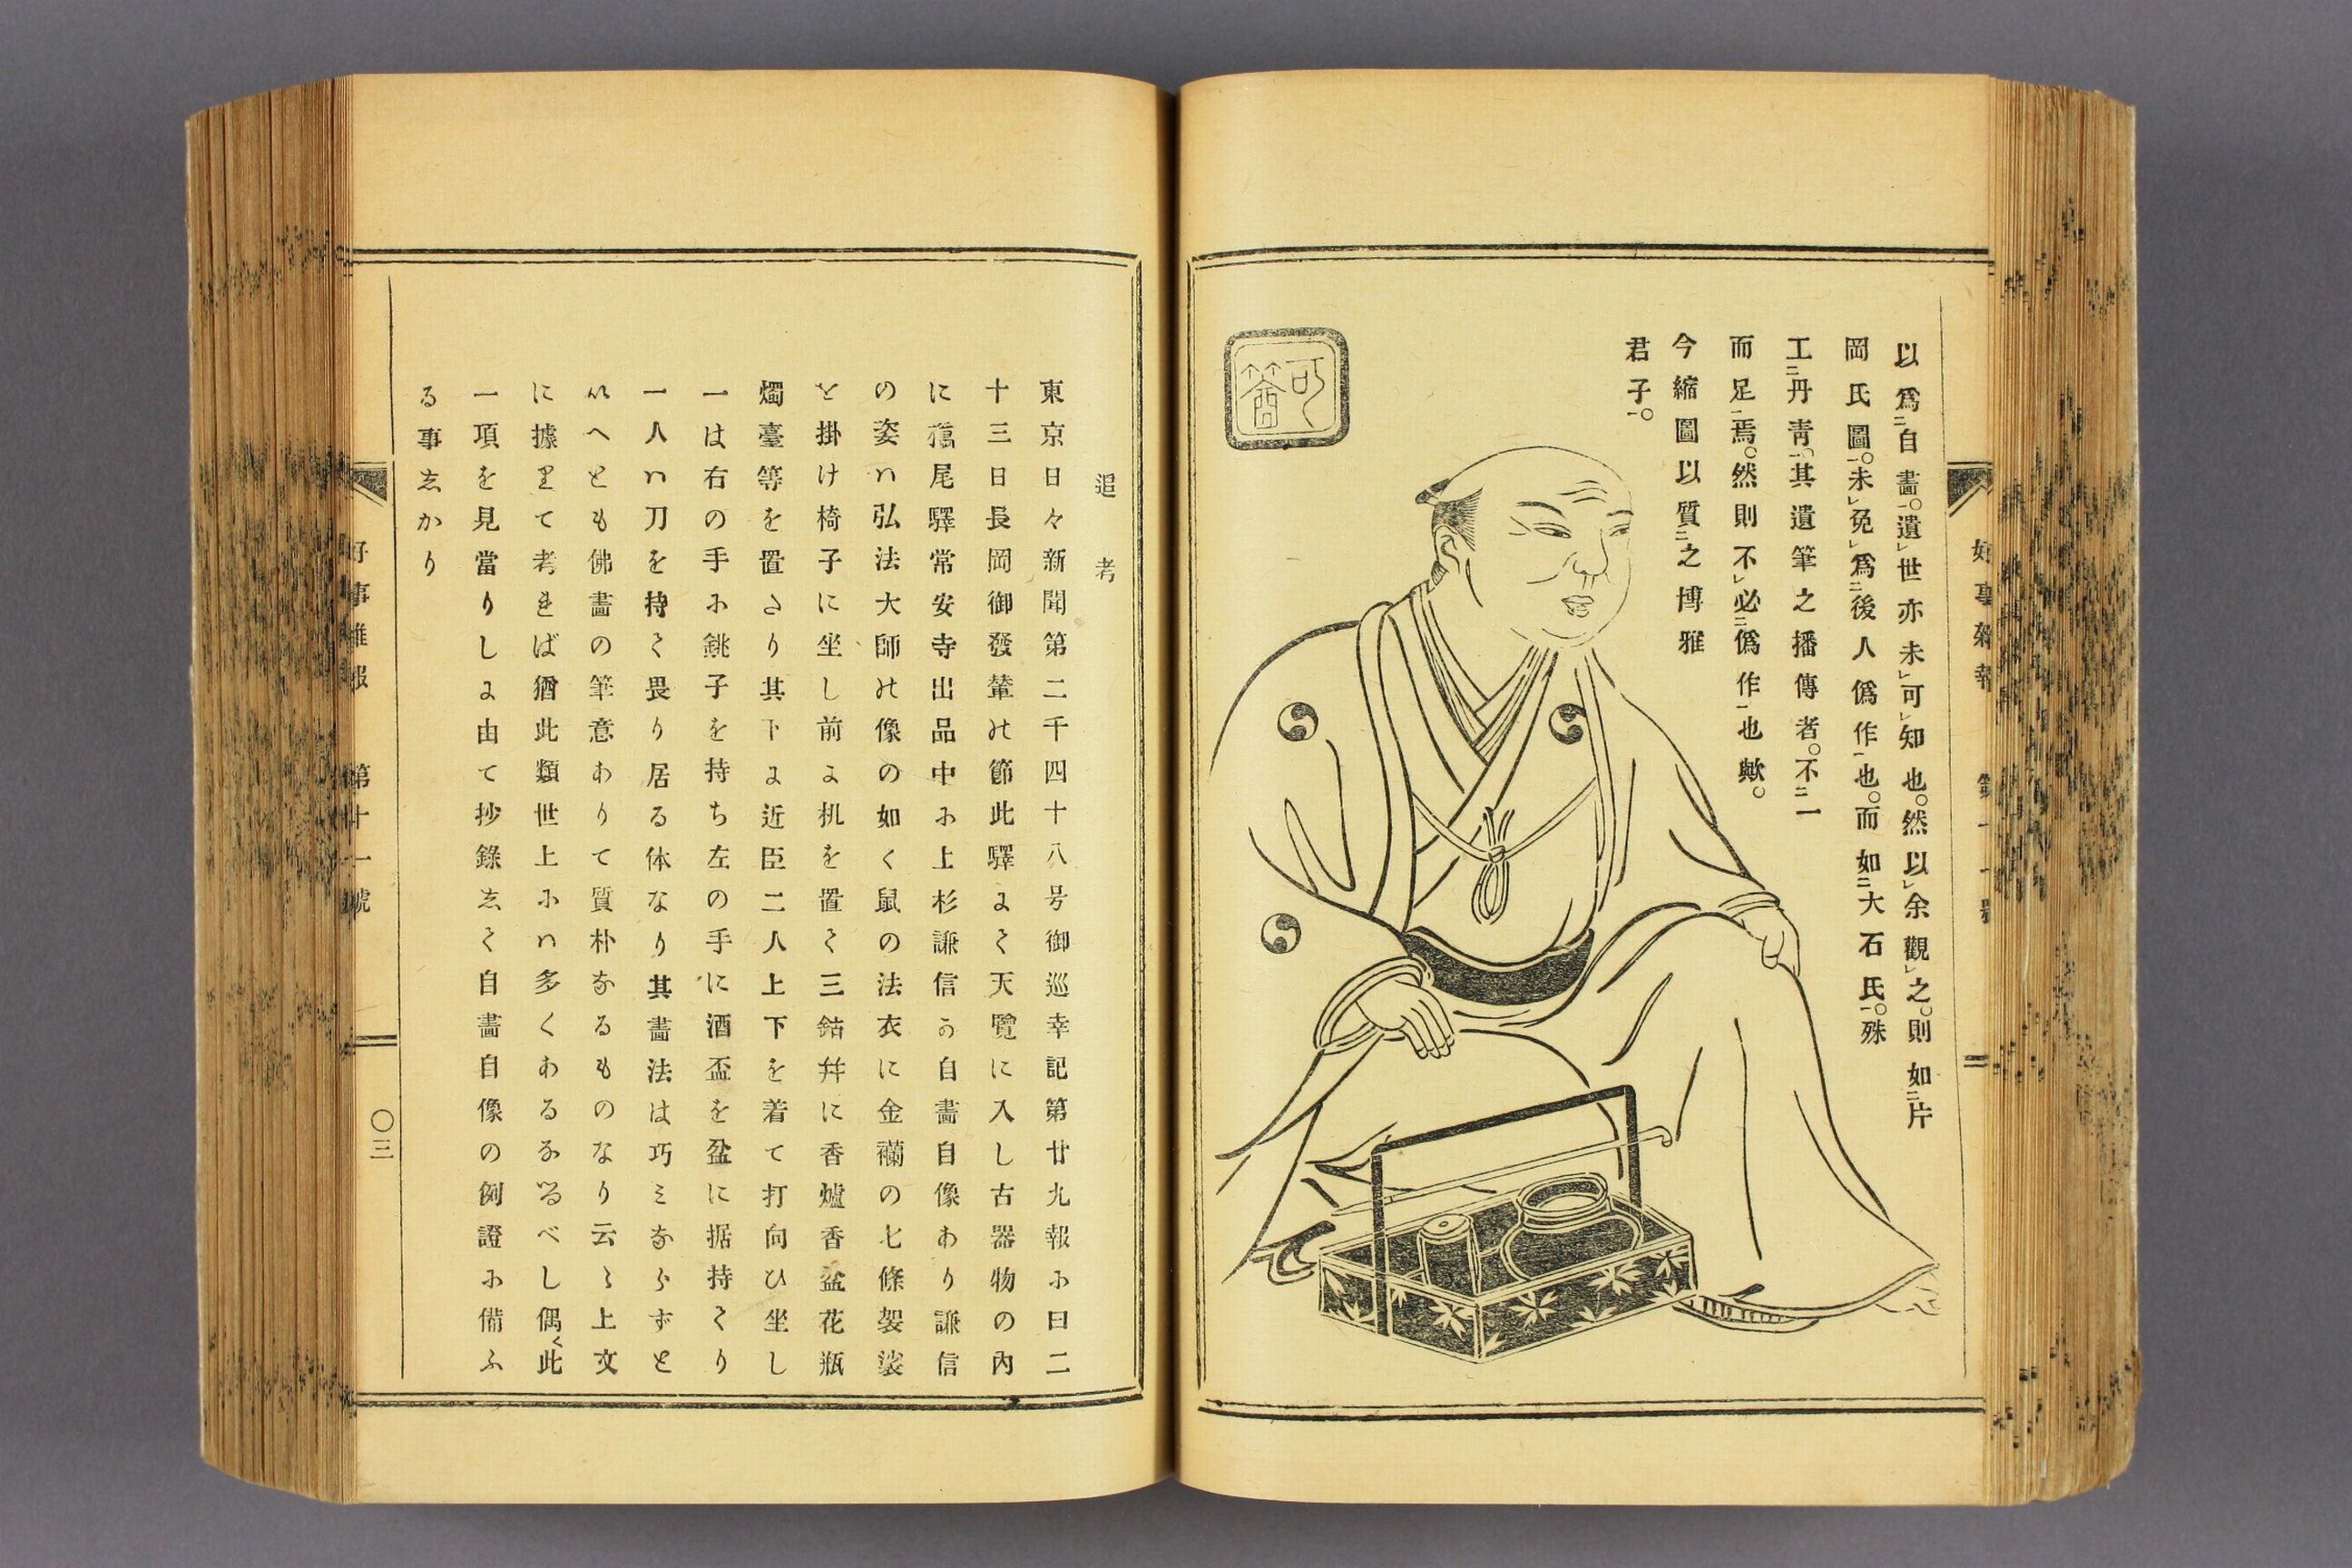 以爲二自畵一。遺レ世亦未レ可レ知也。然以レ余觀レ之。則如二片
岡氏圖一。未レ免レ爲二後人僞作一也。而如二大石氏一。殊
工二丹靑一。其遺筆之播傳者。不二一
而足一焉。然則不レ必二僞作一也歟。
今縮圖以質二之博雅
君子一。
追考
東京日々新聞第二千四十八号御巡幸記第廿九報ふ曰二
十三日長岡御發輦の節此驛よて天覽に入し古器物の內
に 尾驛常安寺出品中ふ上杉謙信の自畵自像あり謙信
の姿ハ弘法大師の像の如く鼠の法衣に金襴の七條袈裟
を掛け椅子に坐し前よ机を置て三鈷幷に香爐香盆花瓶
燭臺等を置さり其下よ近臣二人上下を着て打向ひ坐し
一は右の手ふ銚子を持ち左の手に酒盃を盆に据持てり
一人ハ刀を持て畏り居る体なり其畵法は巧ミならずと
いへとも佛畵の筆意ありて質朴なるものなり云々上文
に據りて考れば猶此類世上ふハ多くあるなるべし偶〱此
一項を見當りしよ由て抄錄志て自畵自像の例證ふ備ふ
る事志かり
好事雜報 第十一號
〇三